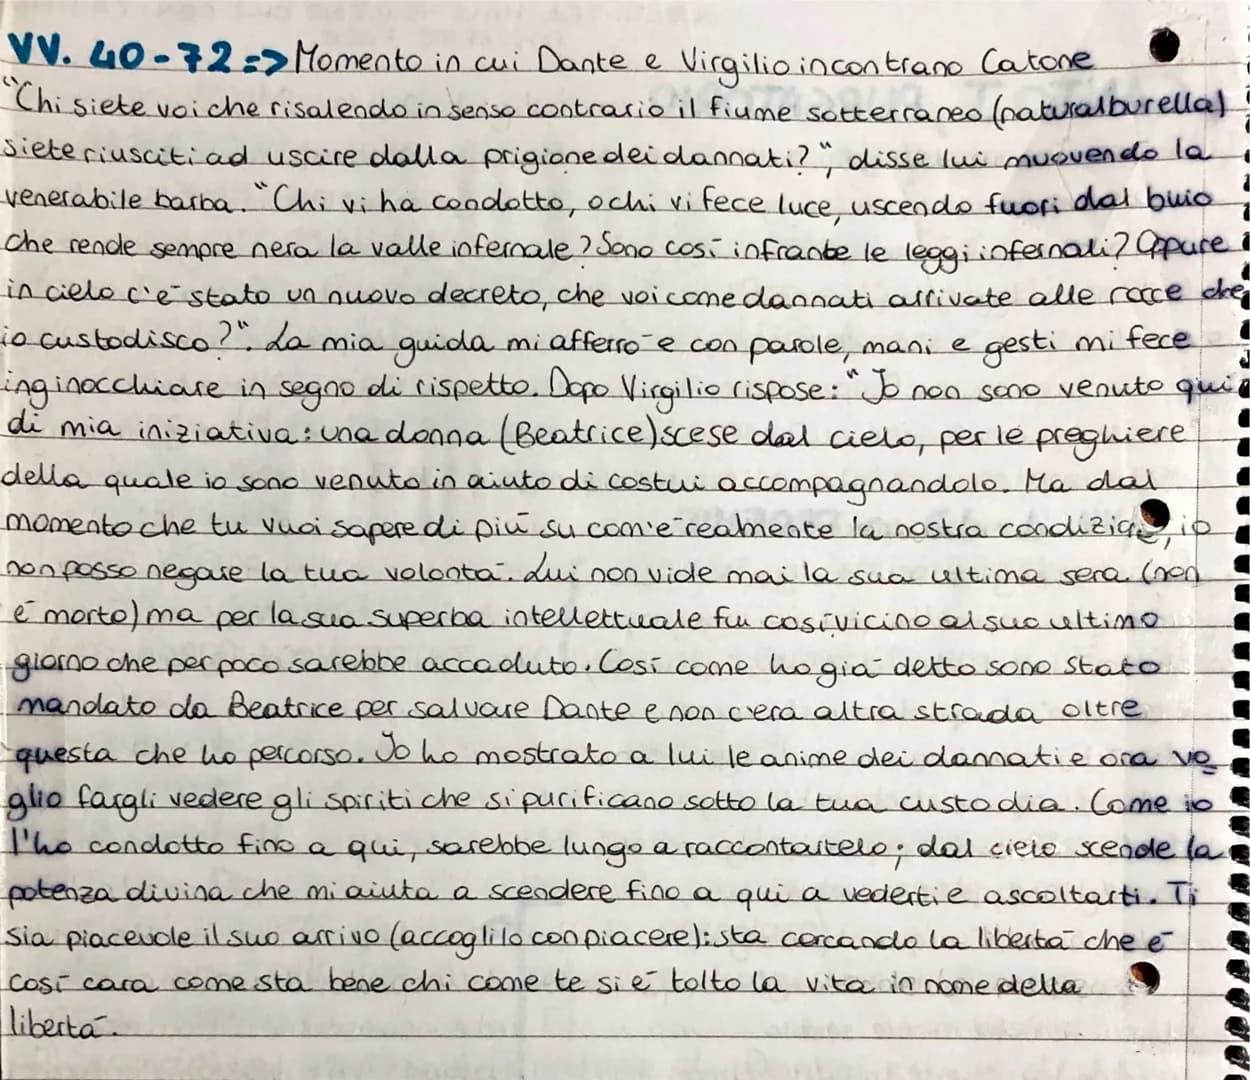 VV. 40-72 => Momento in cui Dante e Virgilio incontrano Catone
"Chi siete voi che risalendo in senso contrario il fiume sotterraneo (natural burella)
siete riusciti ad uscire dalla prigione dei dannati?", disse lui muovendo la
venerabile barba. "Chi vi ha condotto, o chi vi fece luce, uscendo fuori dal buio
che rende sempre nera la valle infernale? Sono così infrante le leggi infernali? Oppure
in cielo c'è stato un nuovo decreto, che voi come dannati arrivate alle rocce che
io custodisco?". La mia guida mi afferrò e con parole, mani e gesti mi fece
inginocchiare in segno di rispetto. Dopo Virgilio rispose: "Io non sono venuto qui
di mia iniziativa: una donna (Beatrice) scese dal cielo, per le preghiere
della quale io sono venuto in aiuto di costui accompagnandolo. Ma dal
momento che tu vuoi sapere di più su com'è realmente la nostra condizione, io
non posso negare la tua volontà. Lui non vide mai la sua ultima sera (non
è morto) ma per la sua superba intellettuale fu così vicino al suo ultimo
giorno che per poco sarebbe accaduto. Così come ho già detto sono stato
mandato da Beatrice per salvare Dante e non c'era altra strada oltre
questa che ho percorso. Io ho mostrato a lui le anime dei dannati e ora vo
glio fargli vedere gli spiriti che si purificano sotto la tua custodia. Come io
l'ho condotto fino a qui, sarebbe lungo a raccontartelo; dal cielo scende la
potenza divina che mi aiuta a scendere fino a qui a vederti e ascoltarti. Ti
sia piacevole il suo arrivo (accoglilo con piacere): sta cercando la libertà che è
così cara come sta bene chi come te si è tolto la vita in nome della
libertà.